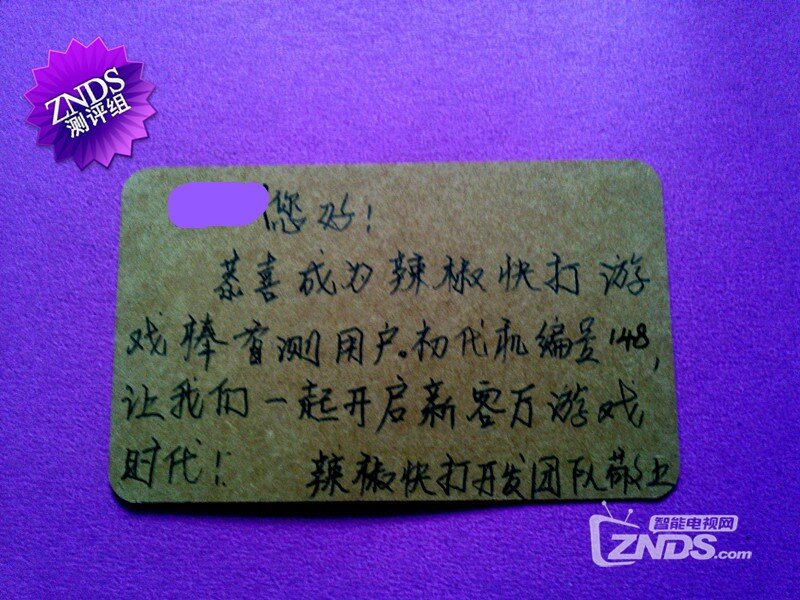 ZNDS
测评组
您好!
恭喜成为辣椒快打游
戏棒盲测用户。初代机编号148,
让我们一起开启新零万游戏
时代!
辣椒快打开发团队敬上
智能电视网
ZNDS.com